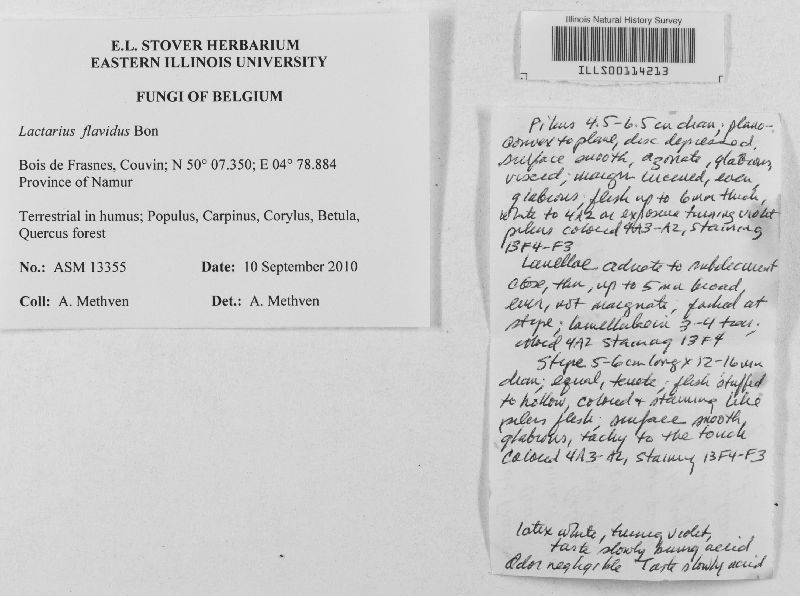 E.L. STOVER HERBARIUM
EASTERN ILLINOIS UNIVERSITY
FUNGI OF BELGIUM
Lactarius flavidus Bon
Bois de Frasnes, Couvin; N 50° 07.350; E 04° 78.884
Province of Namur
Terrestrial in humus; Populus, Carpinus, Corylus, Betula,
Quercus forest
No.: ASM 13355 Date: 10 September 2010
Coll: A. Methven Det.: A. Methven
Illinois Natural History Survey
ILLS00114213
Pileus 4.5-6.5 cm diam; plano-
convex to plane, disc depressed,
surface smooth, azonate, glabrous,
viscid; margin incurved, even,
glabrous; flesh up to 6 mm thick,
white to 4A2 on exposure turning violet
pileus colored 4A3-A2, staining
13F4-F3
Lamellae adnate to subdecurrent
close, thin, up to 5 mm broad,
even, not marginate, forked at
stipe; lamellulae in 3-4 tiers;
colored 4A2 staining 13F4
Stipe 5-6 cm long x 12-16 mm
diam; equal, terete; flesh stuffed
to hollow, colored + staining like
pileus flesh; surface smooth,
glabrous, tacky to the touch
colored 4A3-A2, staining 13F4-F3
latex white, turning violet,
taste slowly acrid
Odor negligible Taste slowly acrid